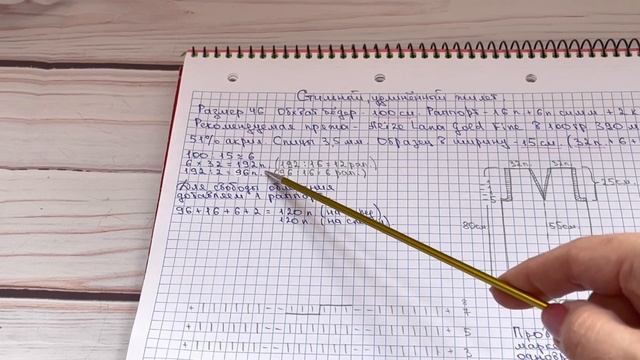 Стильный удлинённый жилет
Размер 46. Обхват бёдер - 100 см. Раппорт - 16 п + 6 п симм + 2 к
Рекомендуемая пряжа - Alize Lana gold Fine в 100 гр. 390 м
51% акрил. Спицы 3,5 мм. Образец в ширину - 15 см. (32 п. + 6
100 : 15 = 6
6 × 32 = 192 п. (192 : 16 = 12 рап.)
192 : 2 = 96 п. (96 : 16 = 6 рап.)
Для свободы облегания
добавляем 1 раппорт
96 + 16 + 6 + 2 = 120 п. (на перед)
120 п. (на спинку)
32п. 32п.
25см
80см
55см
8
7
5
3